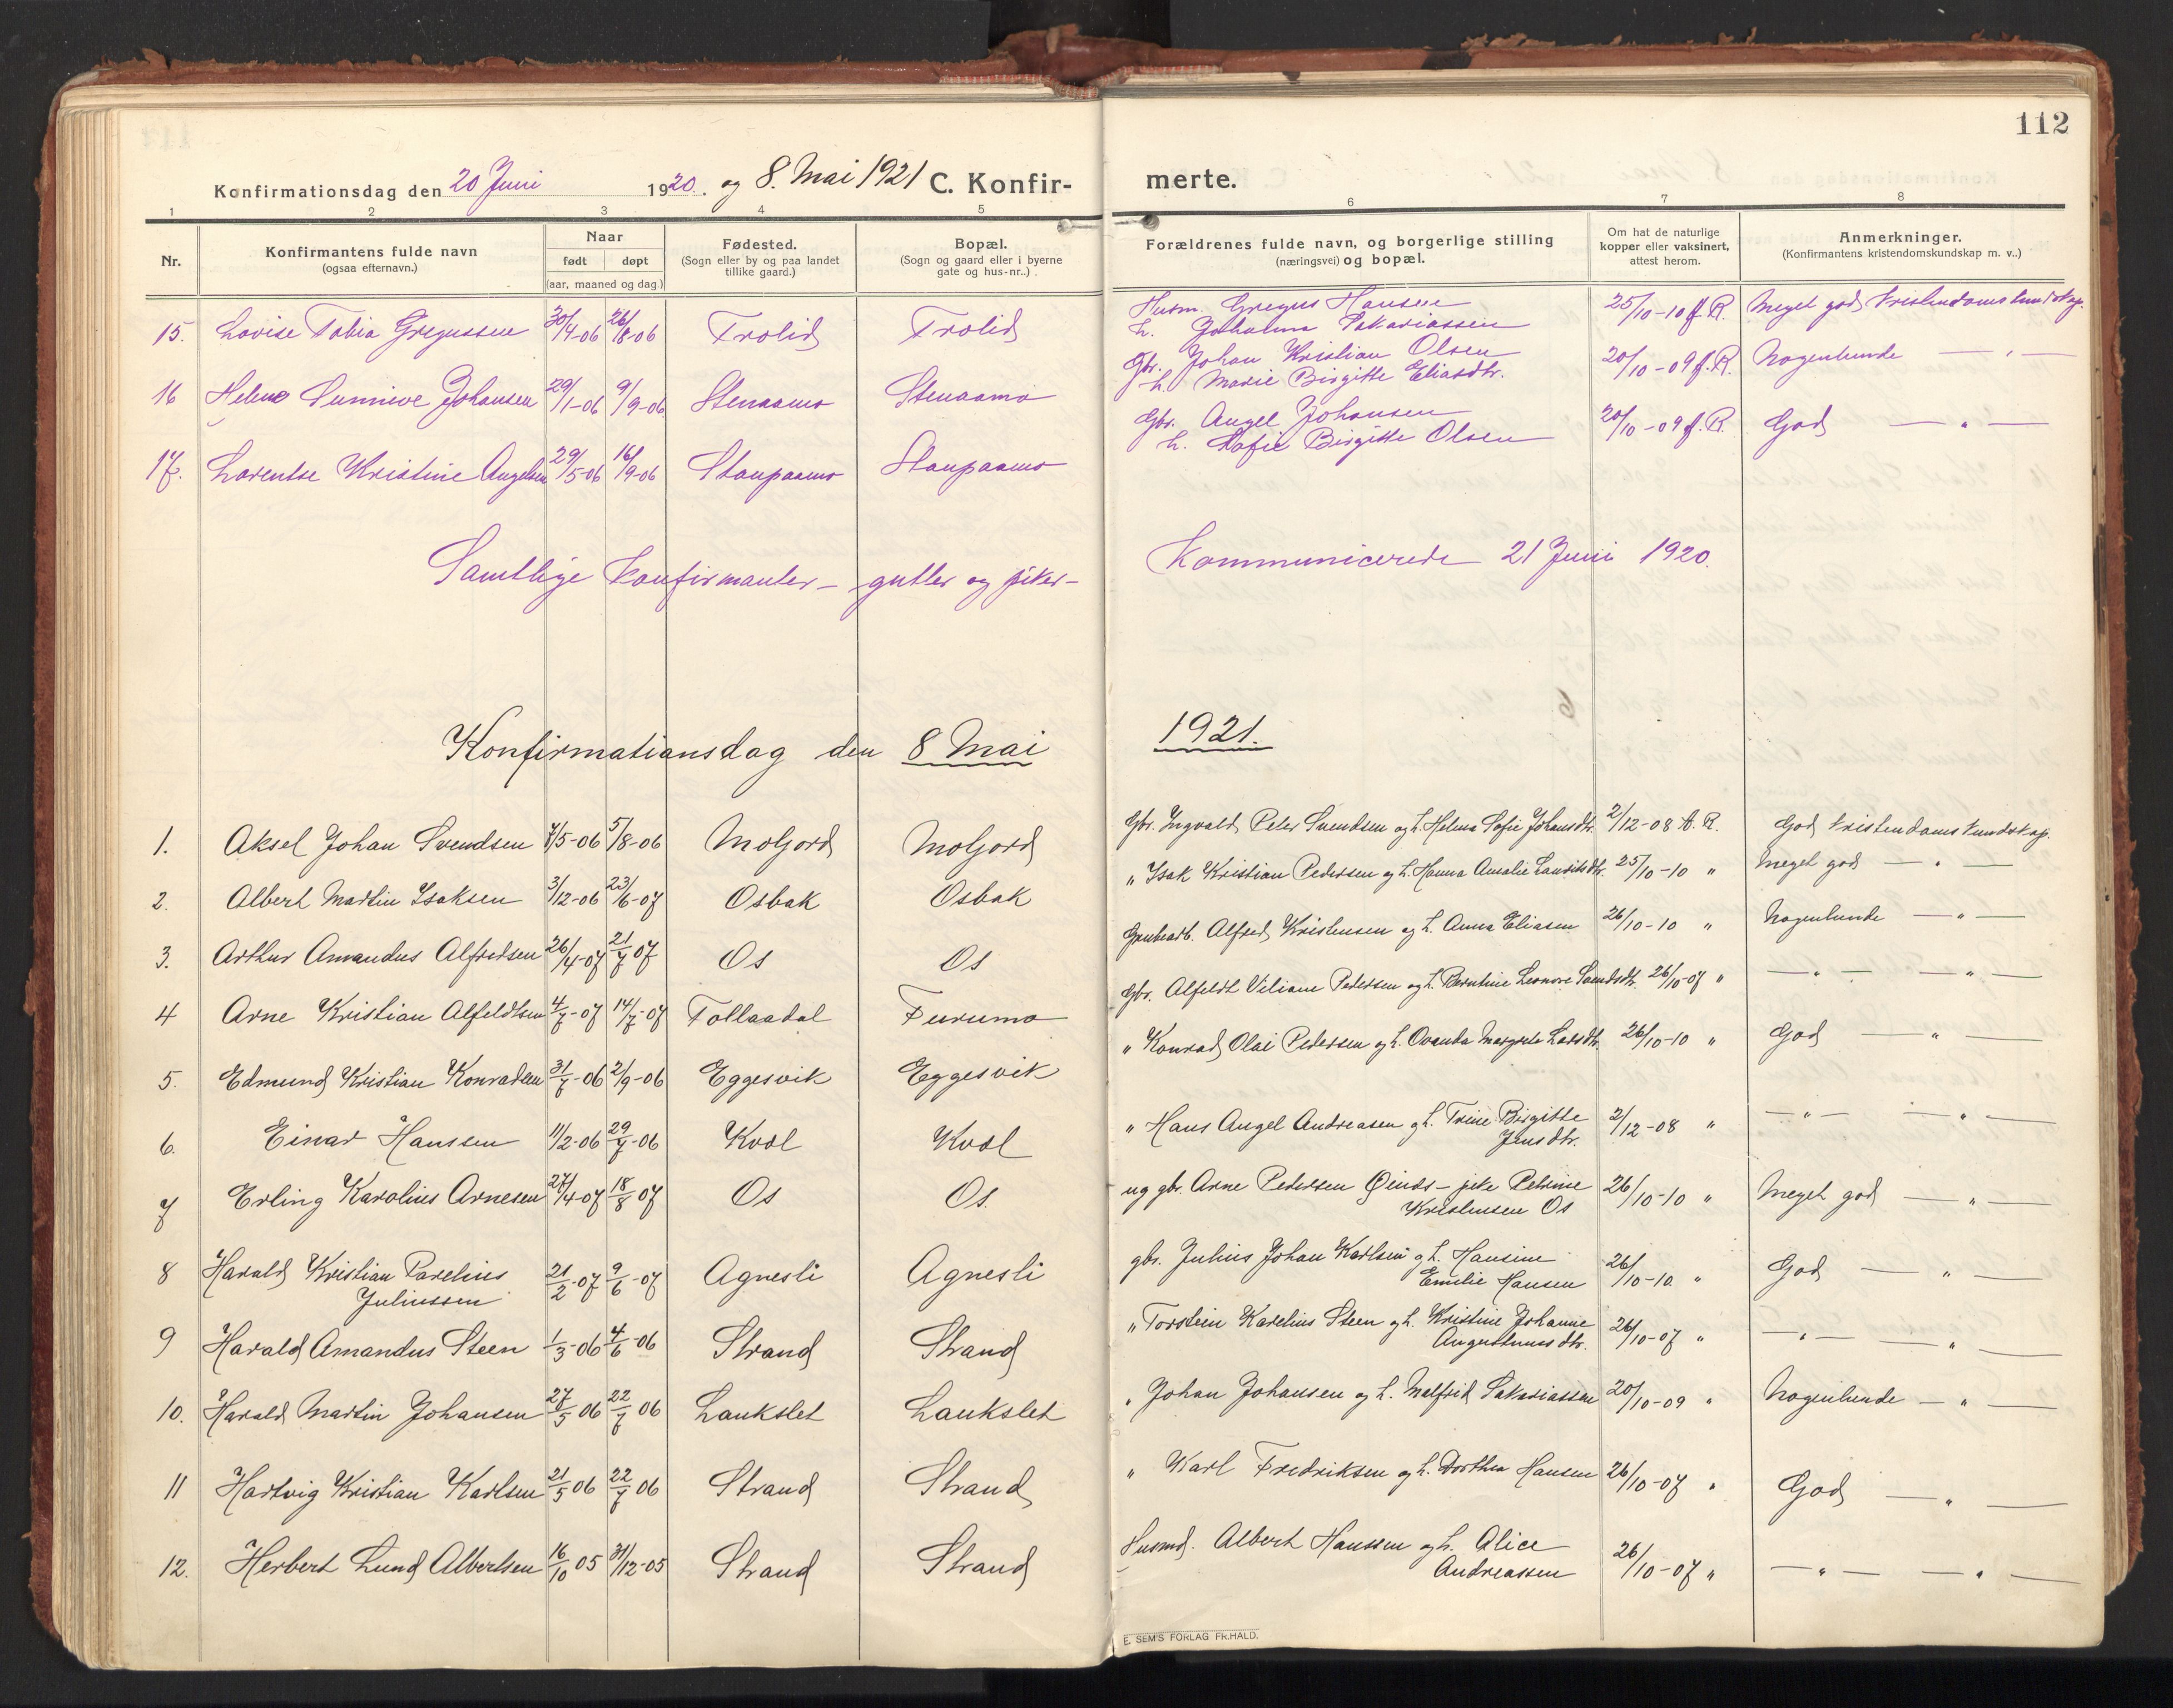 112
Konfirmationsdag den 20 Juni 1920. og 8. Mai 1921 C. Konfirmerte.
1 2 3 4 5 6 7 8
Nr. Konfirmantens fulde navn (ogsaa efternavn.) Naar født døpt (aar, maaned og dag.) Fødested. (Sogn eller by og paa landet tillike gaard.) Bopæl. (Sogn og gaard eller i byerne gate og hus-nr..) Forældrenes fulde navn, og borgerlige stilling (næringsvei) og bopæl. Om hat de naturlige kopper eller vaksinert, attest herom. Anmerkninger. (Konfirmantens kristendomskundskap m. v..)
15. Lovise Tobia Gregussen 30/4-06 26/8-06 Trolid Trolid Husm. Gregus Hansen h. Sakariassen 25/10-10 f. R. Meget god kristendomskundskap.
16 Helene Sunnive Johansen 29/1-06 9/9-06 Stenaamo Stenaamo Gbr. Johan Kristian Olsen h. Marie Birgitte Eliasdtr. 20/10-09 f. R. Nogenlunde — " —
17. Lorentse Kristine Angelsen 29/5-06 16/9-06 Staupaamo Staupaamo Gbr. Angel Johansen h. Sofie Birgitte Olsen 20/10-09 f. R. God — " —
Samtlige konfirmanter – gutter og piker – kommunicerede 21 Juni 1920.
Konfirmationsdag den 8 Mai 1921.
1. Aksel Johan Svendsen 7/5-06 5/8-06 Moljord Moljord Gbr. Ingvald Peter Svendsen og h. Helena Sofie Johansdtr. 2/12-08 A. R. God kristendomskundskap.
2. Albert Martin Isaksen 3/12-06 23/6-07 Osbak Osbak " Isak Kristian Pedersen og h. Hanna Amalie Lauritsdtr. 25/10-10 " Meget god — " —
3. Arthur Amandus Alfredsen 26/4-07 21/7 07 Os Os Grubearb. Alfred Kristensen og h. Anna Eliasen 26/10-10 " Nogenlunde — " —
4 Arne Kristian Alfeldtsen 4/7-07 14/7-07 Tollaadal Furumo Gbr. Alfeldt Viliam Pedersen og h. Berntine Leonore 26/10-07 " — " — — " —
5. Edmund Kristian Konradsen 31/7-06 2/9-06 Eggesvik Eggesvik " Konrad Olai Pedersen og h. Ovanda Margrete Larsdtr. 26/10-10 " God — " —
6. Einar Hanssen 11/2-06 29/7-06 Kvæl Kvæl " Hans Angel Andreasen og h. Trine Birgitte Jensdtr. 2/12-08 " — " — — " —
7 Erling Karolius Arnesen 27/4-07 18/8 07 Os Os. ug gbr. Arne Pedersen – pike Petrine Kristensen Os 26/10-10 " Meget god — " —
8 Harald Kristian Parelius Juliussen 21/2-07 9/6-07 Agnesli Agnesli gbr. Julius Johan Karlsen og h. Hansine Emilie Hansen 26/10-10. " God — " —
9 Harald Amandus Steen 1/3-06 4/6-06 Strand Strand " Torstein Karelius Steen og h. Kristine Johanne Augustinusdtr. 26/10-07 " — " — — " —
10. Harald Martin Johansen 27/5 06 22/7 06 Laukslet Laukslet " Johan Johansen og h. Malfrid Sakariassen 20/10-09 " Nogenlunde — " —
11 Hartvig Kristian Karlsen 21/5 06 22/7 06 Strand Strand " Karl Fredriksen og h. Dorthea Hansen 26/10-07 " God — " —
12. Herbert Lund Albertsen 16/10 05 31/12-05 Strand Strand Husmd. Albert Hanssen og h. Alice Andreassen 26/10-07 " — " — — " —
E. SEM'S FORLAG FR.HALD.